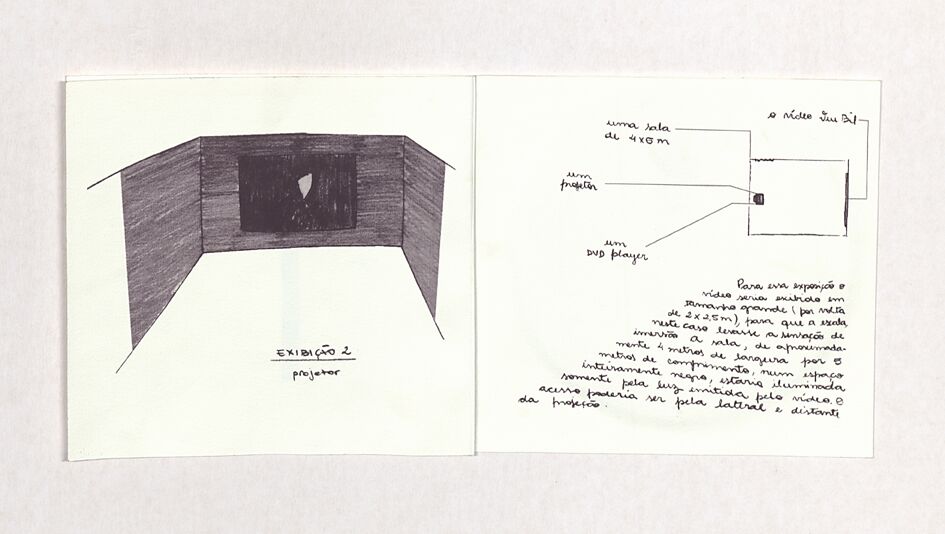 EXIBIÇÃO 2
projetor
uma sala
de 4x5 m
o vídeo
um
projetor
um
DVD player
Para essa exposição o
vídeo seria exibido em
tamanho grande (por volta
de 2 x 2,5 m), para que a escala
neste caso levasse a sensação de
imersão. A sala, de aproximada-
mente 4 metros de largura por 5
metros de comprimento, num espaço
inteiramente negro, estaria iluminada
somente pela luz emitida pelo vídeo. O
acesso poderia ser pela lateral e distante
da projeção.